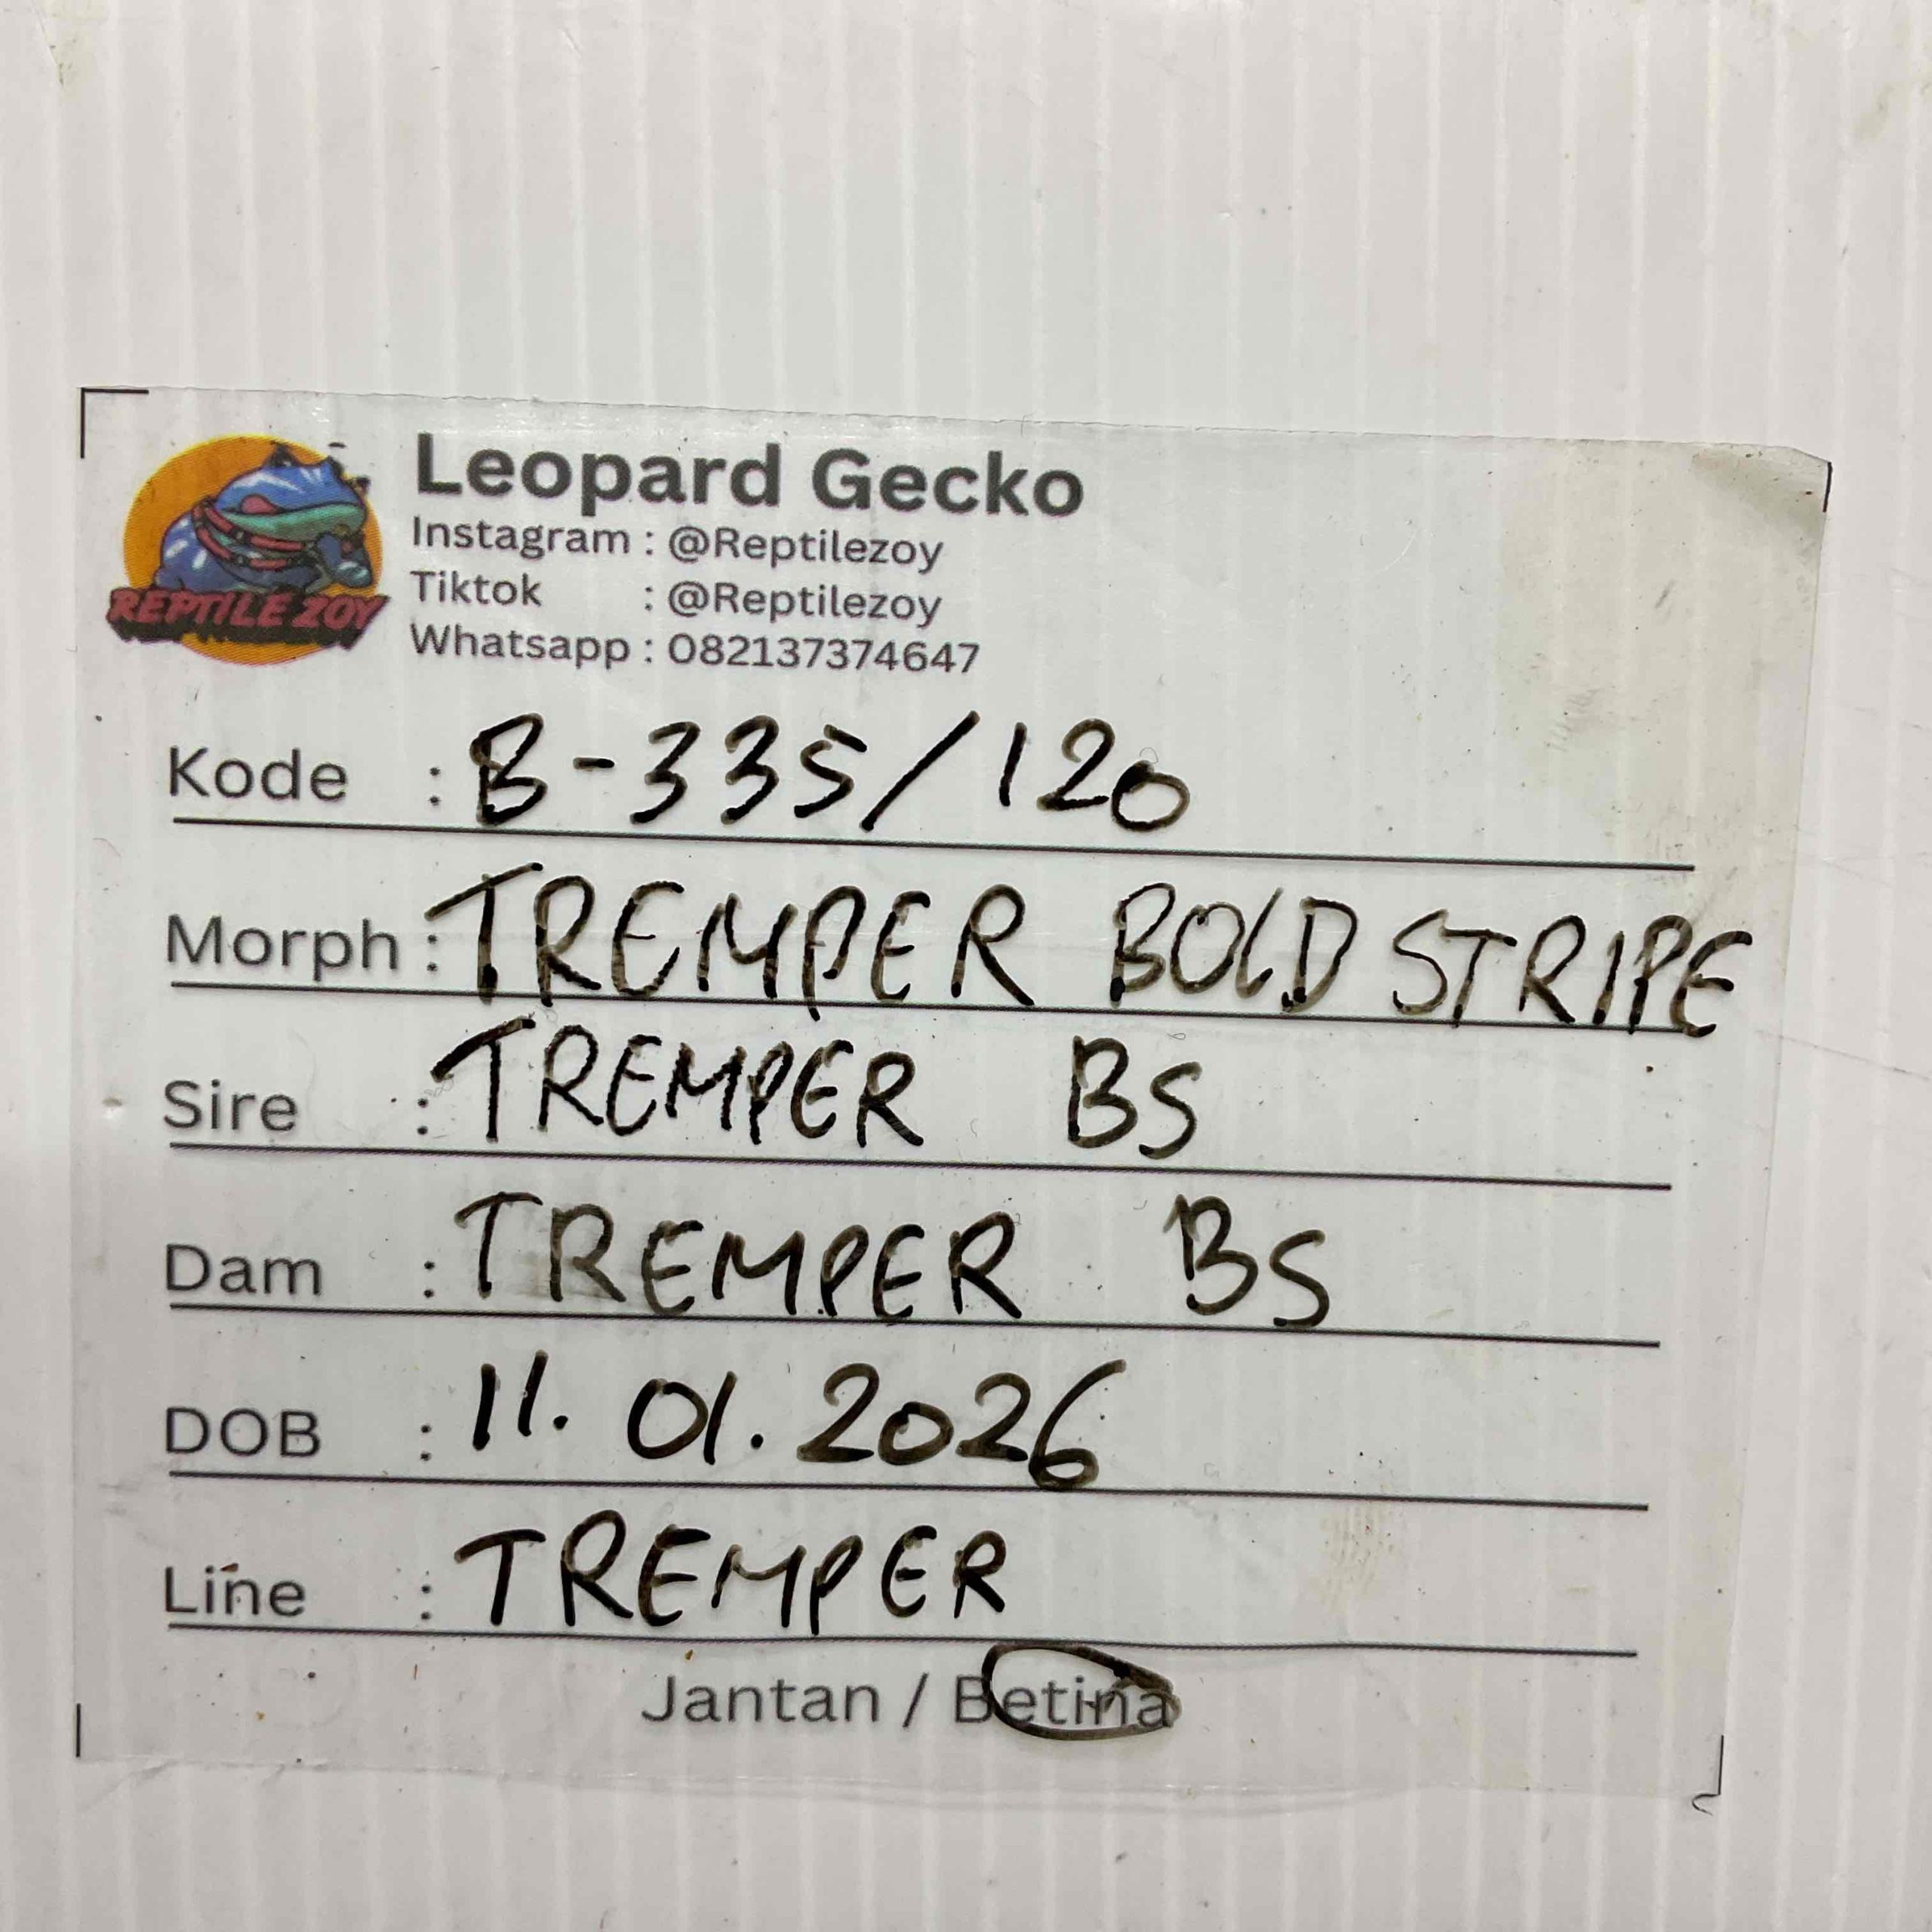 Leopard Gecko
Instagram : @Reptilezoy
Tiktok : @Reptilezoy
Whatsapp : 082137374647
REPTILE ZOY
Kode : B-335/120
Morph : TREMPER BOLD STRIPE
Sire : TREMPER BS
Dam : TREMPER BS
DOB : 11.01.2026
Line : TREMPER
Jantan / Betina